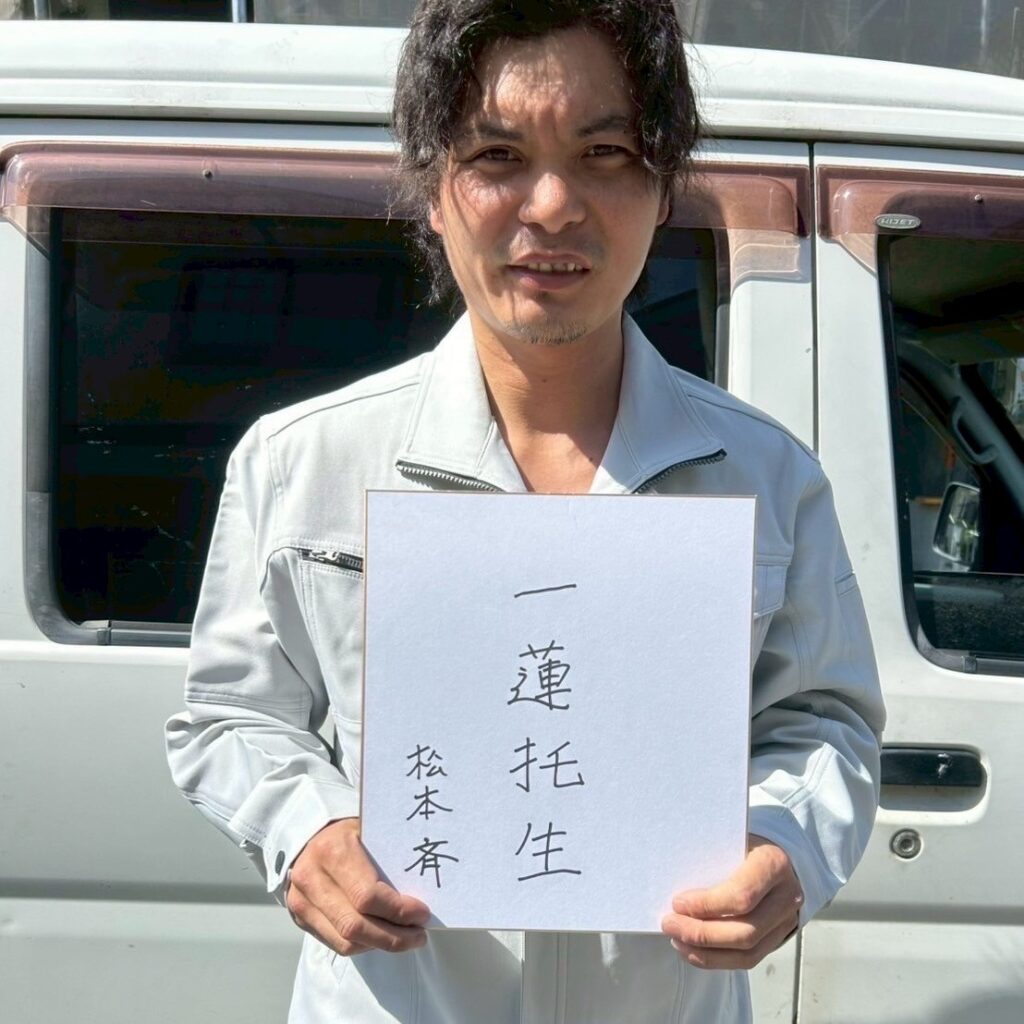 一蓮托生
松本斉
HIJET